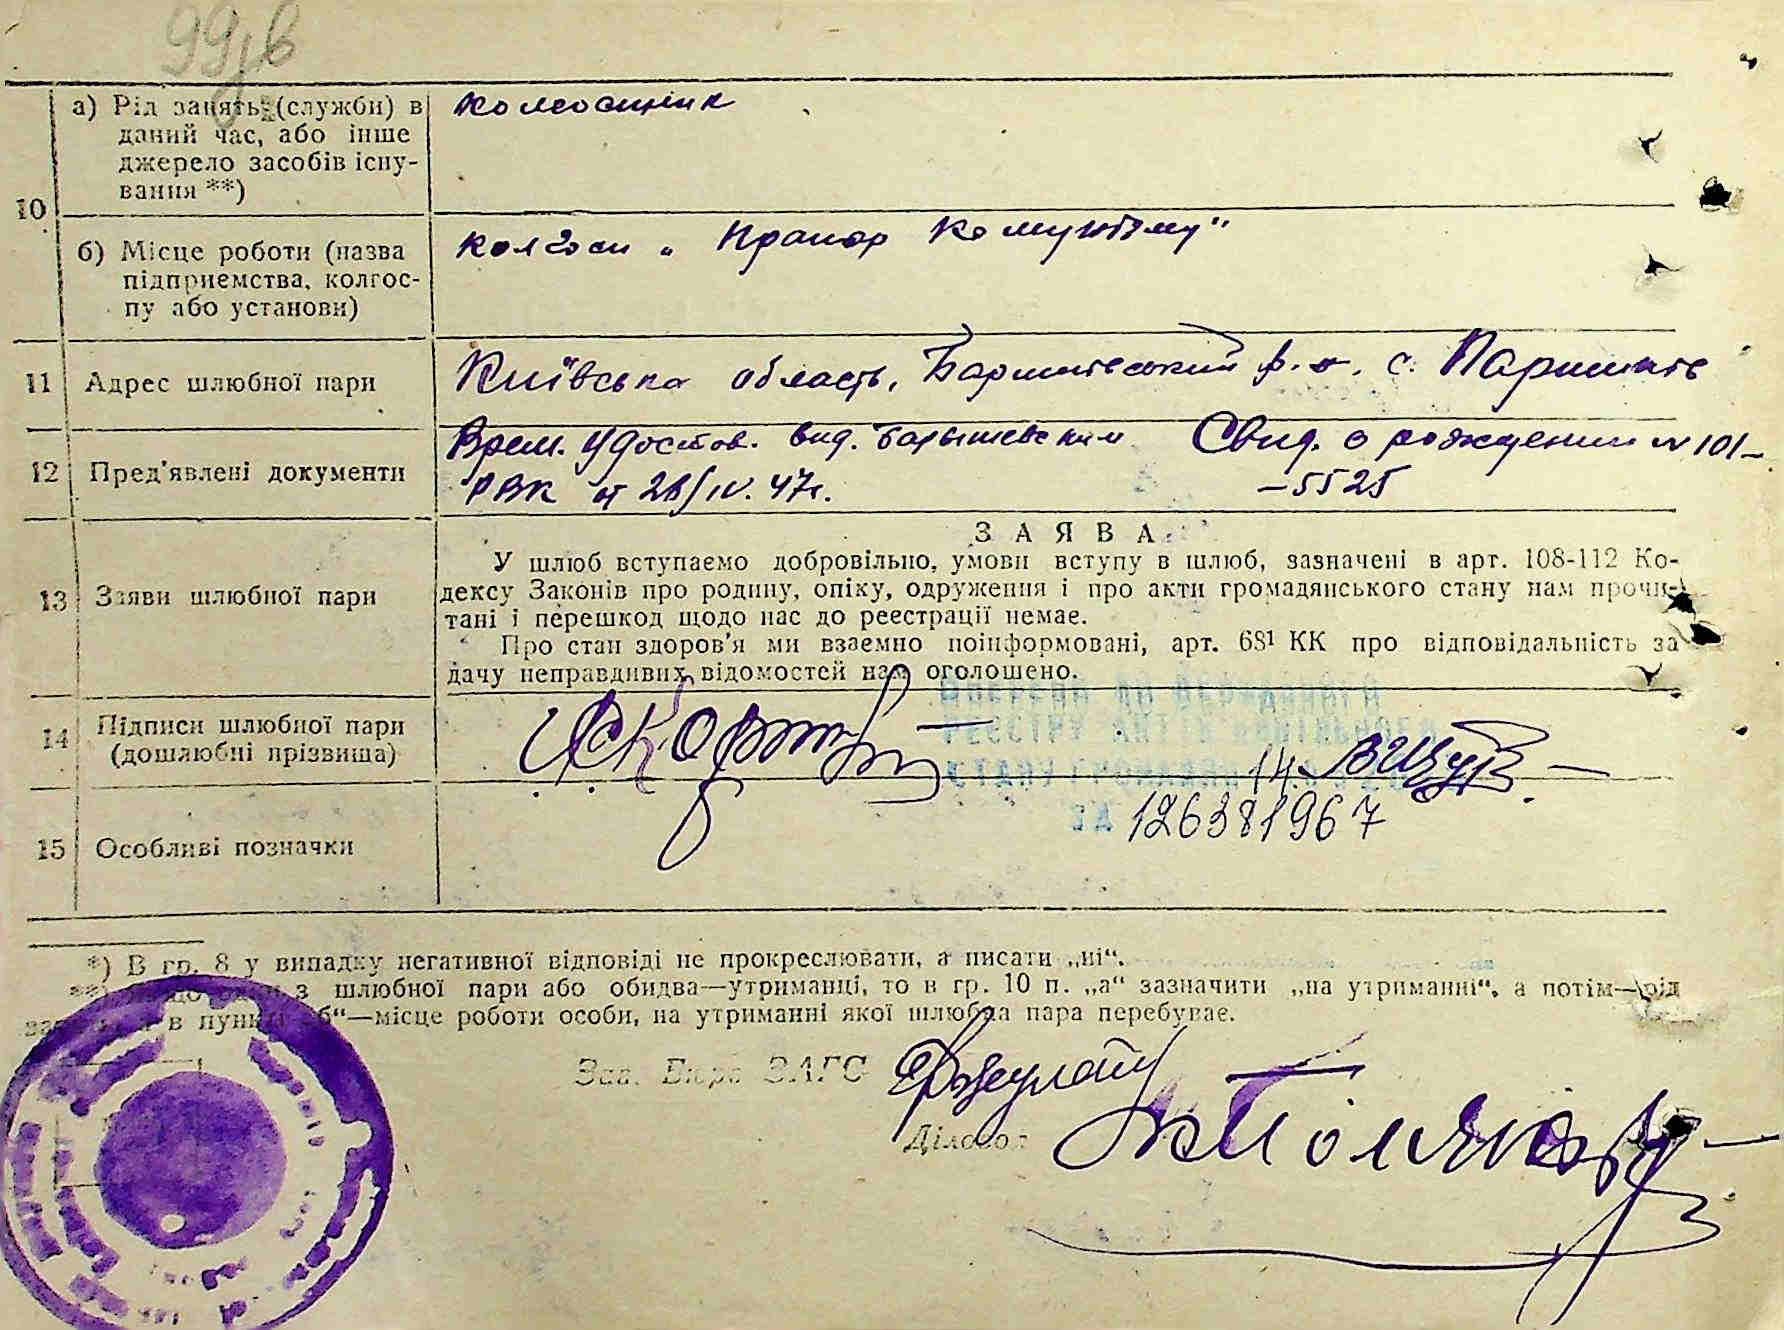 99зв
10
а) Рід занять (служби) в
даний час, або інше
джерело засобів існу-
вання **)
колгоспник
б) Місце роботи (назва
підприємства, колгос-
пу або установи)
колгосп „Прапор Комунізму"
11 Адрес шлюбної пари
Київська область, Баришівський р-н. с. Паришків
12 Пред'явлені документи
Врем. удостов. вид. Барышевским Свид. о рождении № 101-
РВК от 28/IV. 47г. -5525
13 Заяви шлюбної пари
ЗАЯВА
У шлюб вступаємо добровільно, умови вступу в шлюб, зазначені в арт. 108-112 Ко-
дексу Законів про родину, опіку, одруження і про акти громадянського стану нам прочи-
тані і перешкод щодо нас до реестрації немає.
Про стан здоров'я ми взаємно поінформовані, арт. 68¹ КК про відповідальність за
дачу неправдивих відомостей нам оголошено.
14 Підписи шлюбної пари
(дошлюбні прізвища)
РЕЄСТРУ АКТІВ ЦИВІЛЬНОГО
СТАНУ ГРОМАДЯН
126381967
15 Особливі позначки
*) В гр. 8 у випадку негативної відповіді не прокреслювати, а писати „ні“.
з шлюбної пари або обидва—утриманці, то в гр. 10 п. „а“ зазначити „на утриманні“, а потім—рід
в пункті „б“—місце роботи особи, на утриманні якої шлюбна пара перебуває.
Зав. Бюро ЗАГС
Діловод